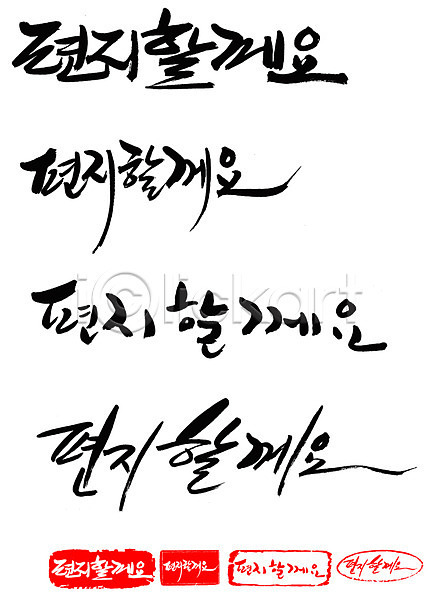 편지할께요
편지할께요
편지할께요
편지할께요
편지할께요 편지할께요 편지할께요 편지할께요